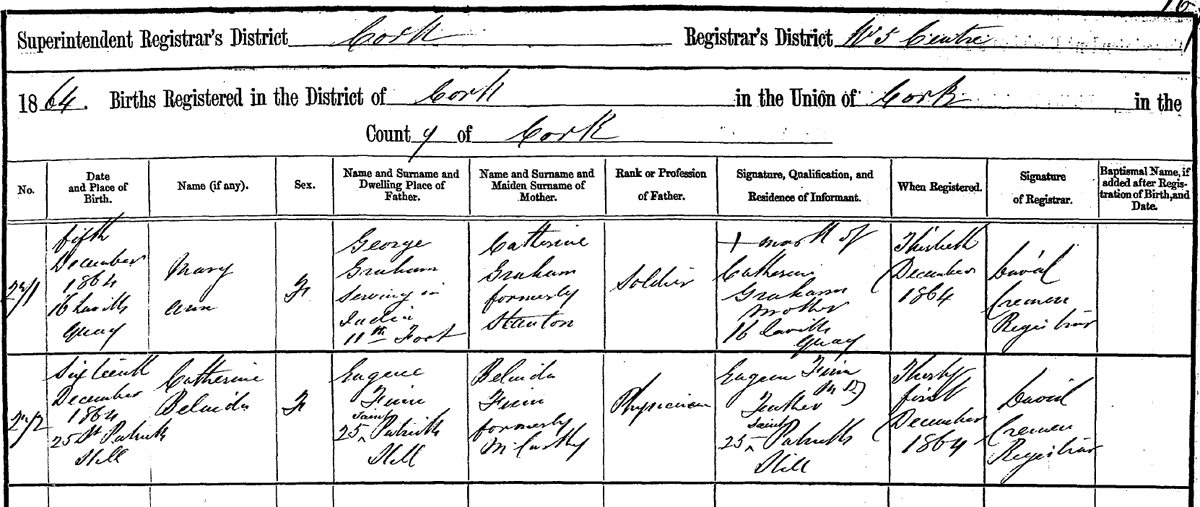 Superintendent Registrar's District Cork Registrar's District No 5 Centre
1864. Births Registered in the District of Cork in the Union of Cork in the
County of Cork
No.
Date
and Place of
Birth.
Name (if any).
Sex.
Name and Surname and
Dwelling Place of
Father.
Name and Surname and
Maiden Surname of
Mother.
Rank or Profession
of Father.
Signature, Qualification, and
Residence of Informant.
When Registered.
Signature
of Registrar.
Baptismal Name, if
added after Regis-
tration of Birth, and
Date.
fifth
December
1864
16 Lavitts
Quay
Mary
Ann
F
George
Graham
Serving in
India
11th Foot
Catherine
Graham
formerly
Stanton
Soldier
+ mark of
Catherine
Graham
Mother
16 Lavitts
Quay
Thirtieth
December
1864
David
Cremen
Registrar
Sixteenth
December
1864
25 St Patricks
Hill
Catherine
Belinda
F
Eugene
Finn
25 Saint Patricks
Hill
Belinda
Finn
formerly
McCarthy
Physician
Eugene Finn
M D
Father
25 Saint Patricks
Hill
Thirty
first
December
1864
David
Cremen
Registrar